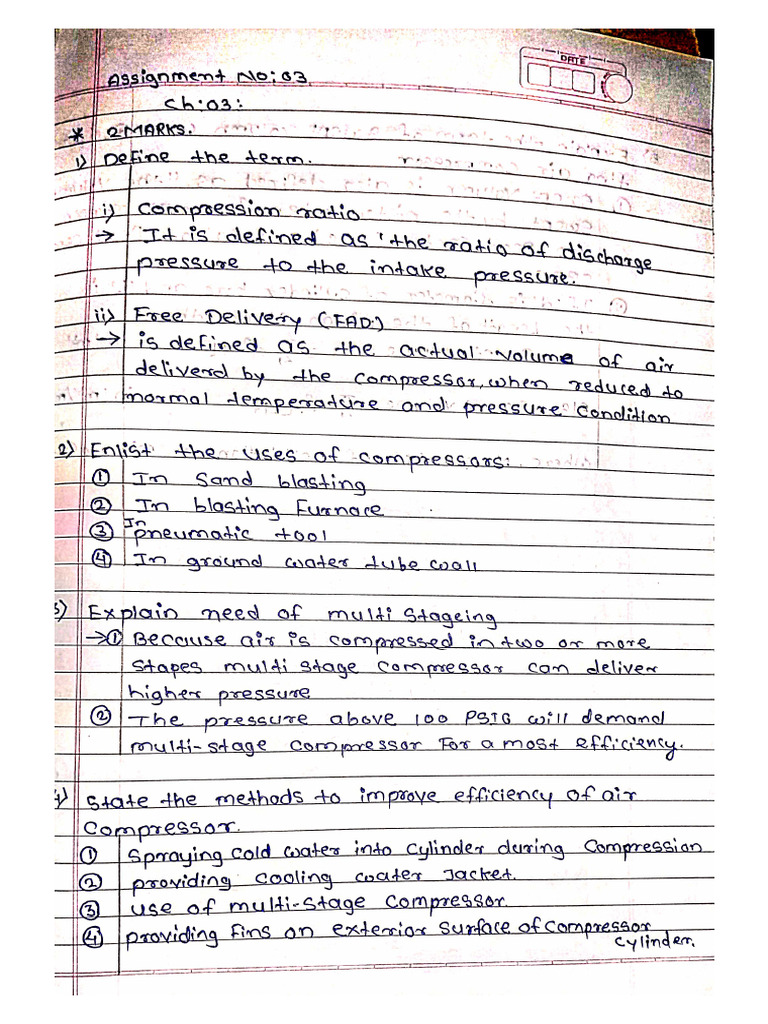 DATE
Assignment No:03
Ch:03:
* 2 MARKS.
1) Define the term.
i) Compression ratio
→ It is defined as the ratio of discharge
pressure to the intake pressure.
ii) Free Delivery (FAD)
→ is defined as the actual volume of air
deliverd by the compressor, when reduced to
normal temperature and pressure condition
2) Enlist the uses of compressors:
① In Sand blasting
② In blasting Furnace
③ In pneumatic tool
④ In ground water tube wall
3) Explain need of multi stageing
→ ① Because air is compressed in two or more
stapes multi stage compressor can deliver
higher pressure
② The pressure above 100 PSIG will demand
multi-stage compressor for a most efficiency.
4) State the methods to improve efficiency of air
compressor.
① Spraying cold water into cylinder during Compression
② providing cooling water Jacket.
③ use of multi-stage compressor.
④ providing fins on exterior surface of compressor
cylinder.